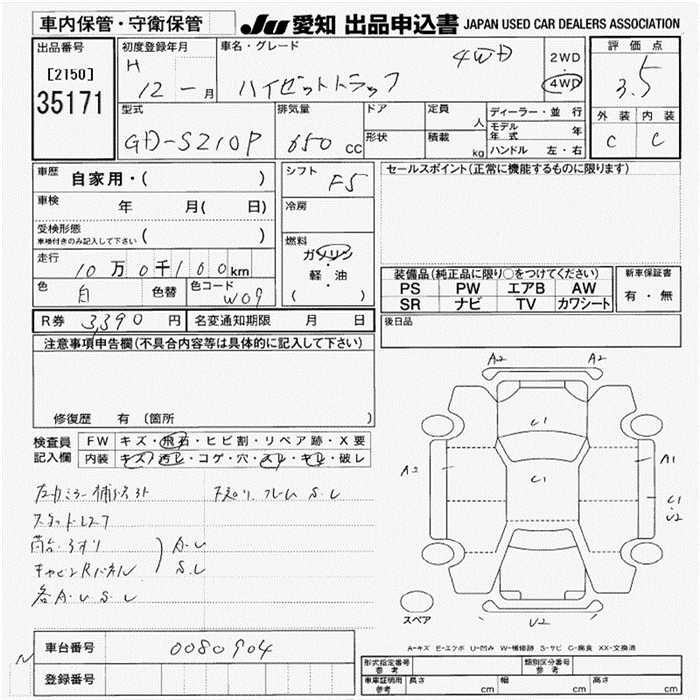 車内保管・守衛保管 JU 愛知 出品申込書 JAPAN USED CAR DEALERS ASSOCIATION
出品番号
[2150]
35171
初度登録年月
H 12 一月
車名・グレード
ハイゼットトラック 4WD
2WD
4WD
評価点
3.5
外装 内装
C C
型式
GD-S210P
排気量
650 cc
ドア
形状
定員 人
積載 kg
ディーラー・並行
モデル年式 年
ハンドル 左・右
車歴 自家用・( )
車検 年 月( 日)
受検形態
車検付きのみ記入して下さい ( )
走行 10万0千100km
色 白 色替 色コード W09
シフト F5
冷房
燃料
ガソリン
軽・油
( )
セールスポイント(正常に機能するものに限ります)
装備品(純正品に限り○をつけてください)
PS PW エアB AW
SR ナビ TV カワシート
新車保証書
有・無
R券 3,390円 名変通知期限 月 日
後日品
注意事項申告欄(不具合内容等は具体的に記入して下さい)
修復歴 有 〔箇所 〕
検査員
記入欄
FW キズ・飛石・ヒビ割・リペア跡・X要
内装 キズ・汚レ・コゲ・穴・スレ・キレ・破レ
下廻り フレーム S.U
A.U
S.U
各A.U S.U
A2 A2
C1
C1
A2
A1
C1
U2
U2
スペア
A-キズ E-エクボ U-凹み W-補修跡 S-サビ C-腐食 XX-交換済
N
車台番号 0080904
登録番号
型式指定番号
参考
類別区分番号
参考
車庫証明用
参考
長さ cm 幅 cm 高さ cm